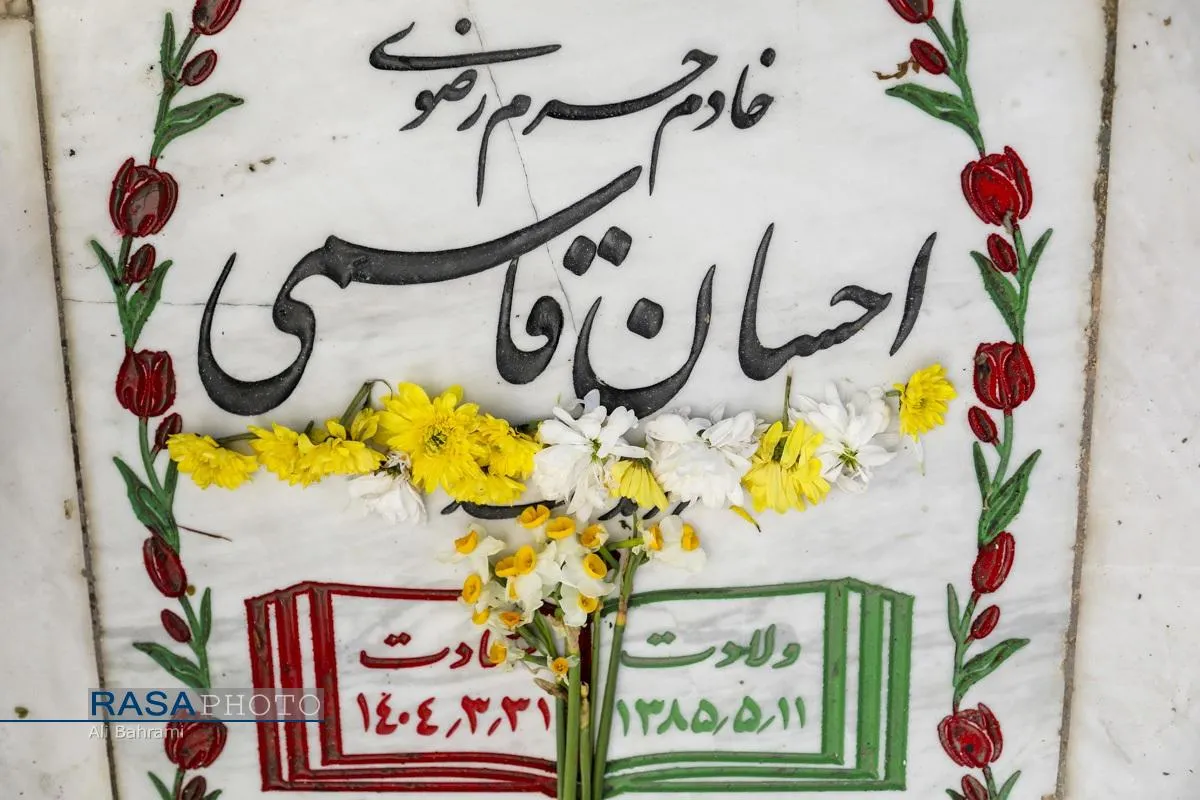 خادم حرم رضوی
احسان قاسمی
ولادت
۱۳۸۵٫۵٫۱۱
۱۴۰۴٫۳٫۳۱
RASA PHOTO
Ali Bahrami